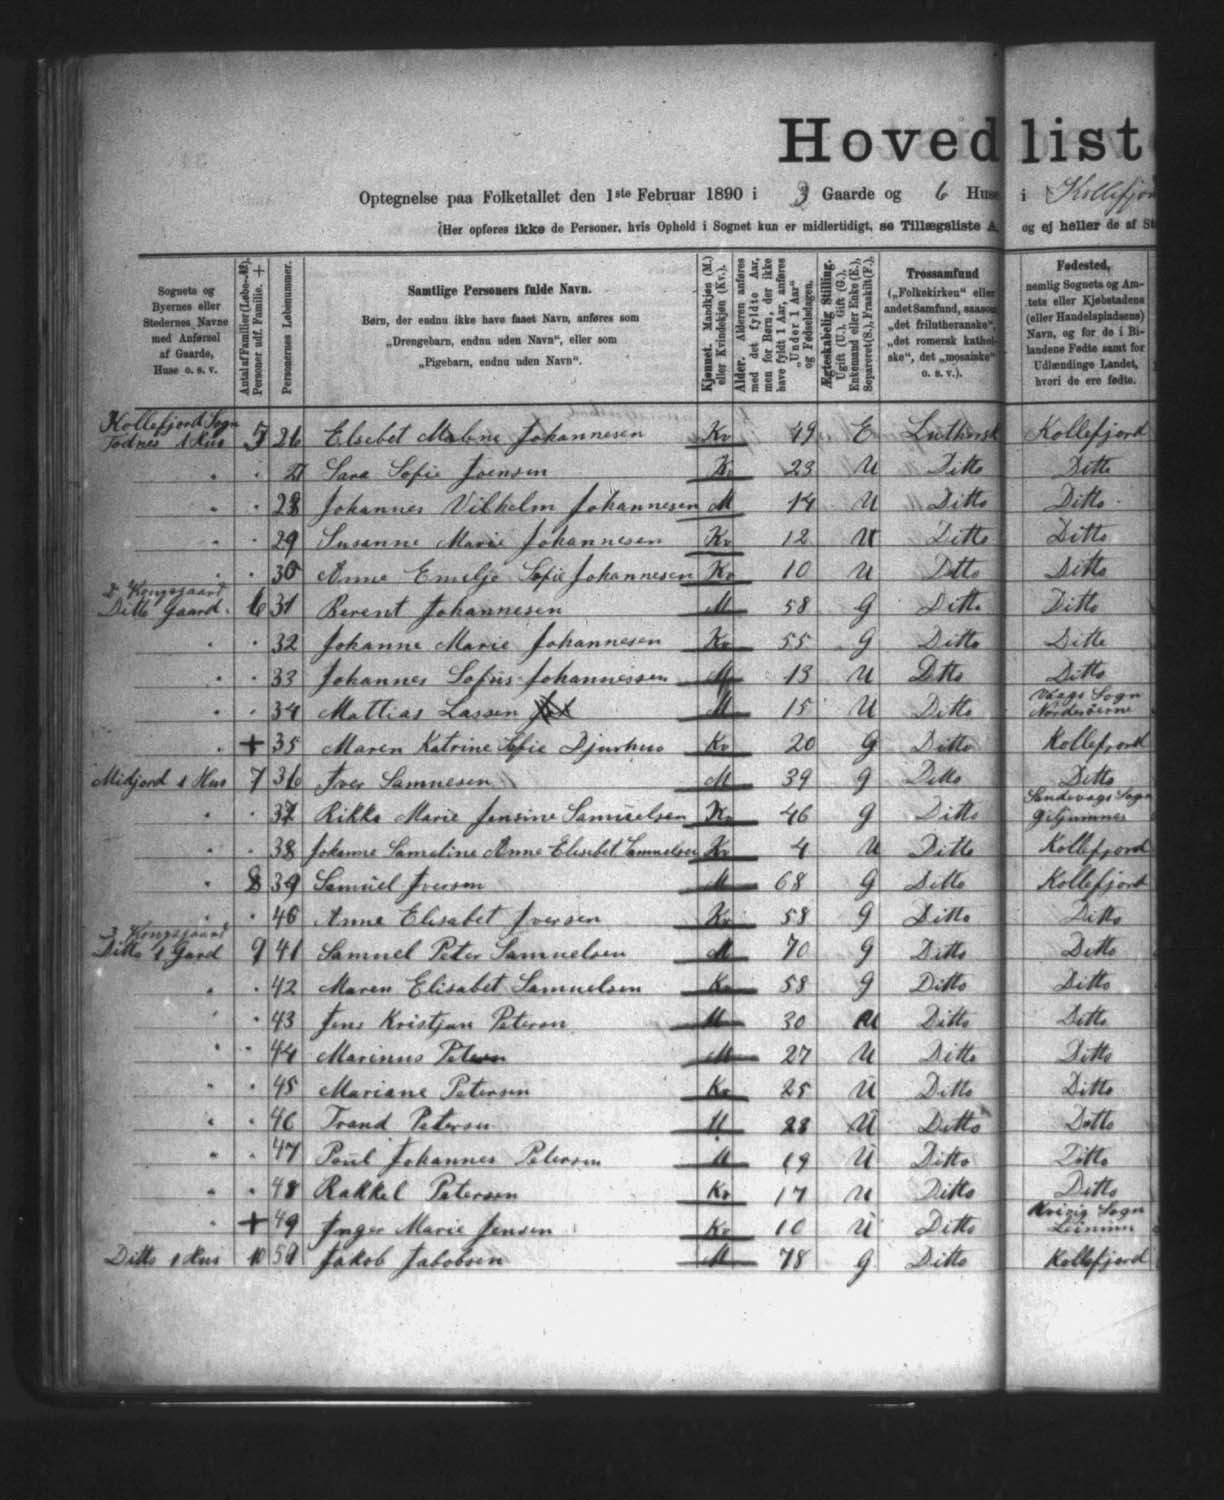 Hovedlist
Optegnelse paa Folketallet den 1ste Februar 1890 i 3 Gaarde og 6 Huse i Kollefjor
(Her opføres ikke de Personer, hvis Ophold i Sognet kun er midlertidigt, se Tillægsliste A, og ej heller de af St
Sognets og Byernes eller Stedernes Navne med Anførsel af Gaarde, Huse o. s. v.
Antal af Familier (Løbe-№). Personer udf. Familie. +
Personernes Løbenummer.
Samtlige Personers fulde Navn.
Børn, der endnu ikke have faaet Navn, anføres som
„Drengebarn, endnu uden Navn“, eller som
„Pigebarn, endnu uden Navn“.
Kjønnet. Mandkjøn (M.) eller Kvindekjøn (Kv.).
Alder. Alderen anføres med det fyldte Aar, men for Børn, der ikke have fyldt 1 Aar, anføres „Under 1 Aar“ og Fødselsdagen.
Ægteskabelig Stilling. Ugift (U.), Gift (G.), Enkemand eller Enke (E.), Separeret (S.), Fraskilt (F.).
Trossamfund („Folkekirken“ eller andet Samfund, saasom „det frilutheranske“, „det romersk kathol-ske“, det „mosaiske“ o. s. v.).
Fødested, nemlig Sognets og Am-tets eller Kjøbstadens (eller Handelspladsens) Navn, og for de i Bi-landene Fødte samt for Udlændinge Landet, hvori de ere fødte.
Kollefjord Sogn
Todnes 1 Hus 5 26 Elsebet Malene Johannesen Kv 49 E Luthersk Kollefjord
" · 27 Sara Sofie Joensen Kv 23 U Ditto Ditto
" · 28 Johannes Vilhelm Johannesen M 14 U Ditto Ditto
" · 29 Susanne Marie Johannesen Kv 12 U Ditto Ditto
" · 30 Anne Emilje Sofie Johannesen Kv 10 U Ditto Ditto
Kongsgaard
Ditto Gaard 6 31 Berent Johannesen M 58 G Ditto Ditto
" · 32 Johanne Marie Johannesen Kv 55 G Ditto Ditto
" · 33 Johannes Sofus Johannessen M 13 U Ditto Ditto
" · 34 Mattias Lassen M 15 U Ditto Vaags Sogn Norderöerne
" + 35 Maren Katrine Sofie Djurhuus Kv 20 G Ditto Kollefjord
Midjord 1 Hus 7 36 Iver Samuelsen M 39 G Ditto Ditto
" · 37 Rikka Marie Jensine Samuelsen Kv 46 G Ditto Sandevags Sogn
" · 38 Johanne Sameline Anne Elisebet Samuelsen Kv 4 U Ditto Kollefjord
" 8 39 Samuel Iversen M 68 G Ditto Kollefjord
" · 40 Anne Elisabet Iversen Kv 58 G Ditto Ditto
3 Kongsgaard
Ditto 1 Gard 9 41 Samuel Peter Samuelsen M 70 G Ditto Ditto
" · 42 Maren Elisabet Samuelsen Kv 58 G Ditto Ditto
" · 43 Jens Kristjan Petersen M 30 U Ditto Ditto
" · 44 Marinus Petersen M 27 U Ditto Ditto
" · 45 Mariane Petersen Kv 25 U Ditto Ditto
" · 46 Trand Petersen M 28 U Ditto Ditto
" · 47 Poul Johannes Petersen M 19 U Ditto Ditto
" · 48 Rakkel Petersen Kv 17 U Ditto Ditto
" + 49 Inger Marie Jensen Kv 10 U Ditto Kvivig Sogn Leinum
Ditto 1 Hus 10 50 Jakob Jakobsen M 78 G Ditto Kollefjord